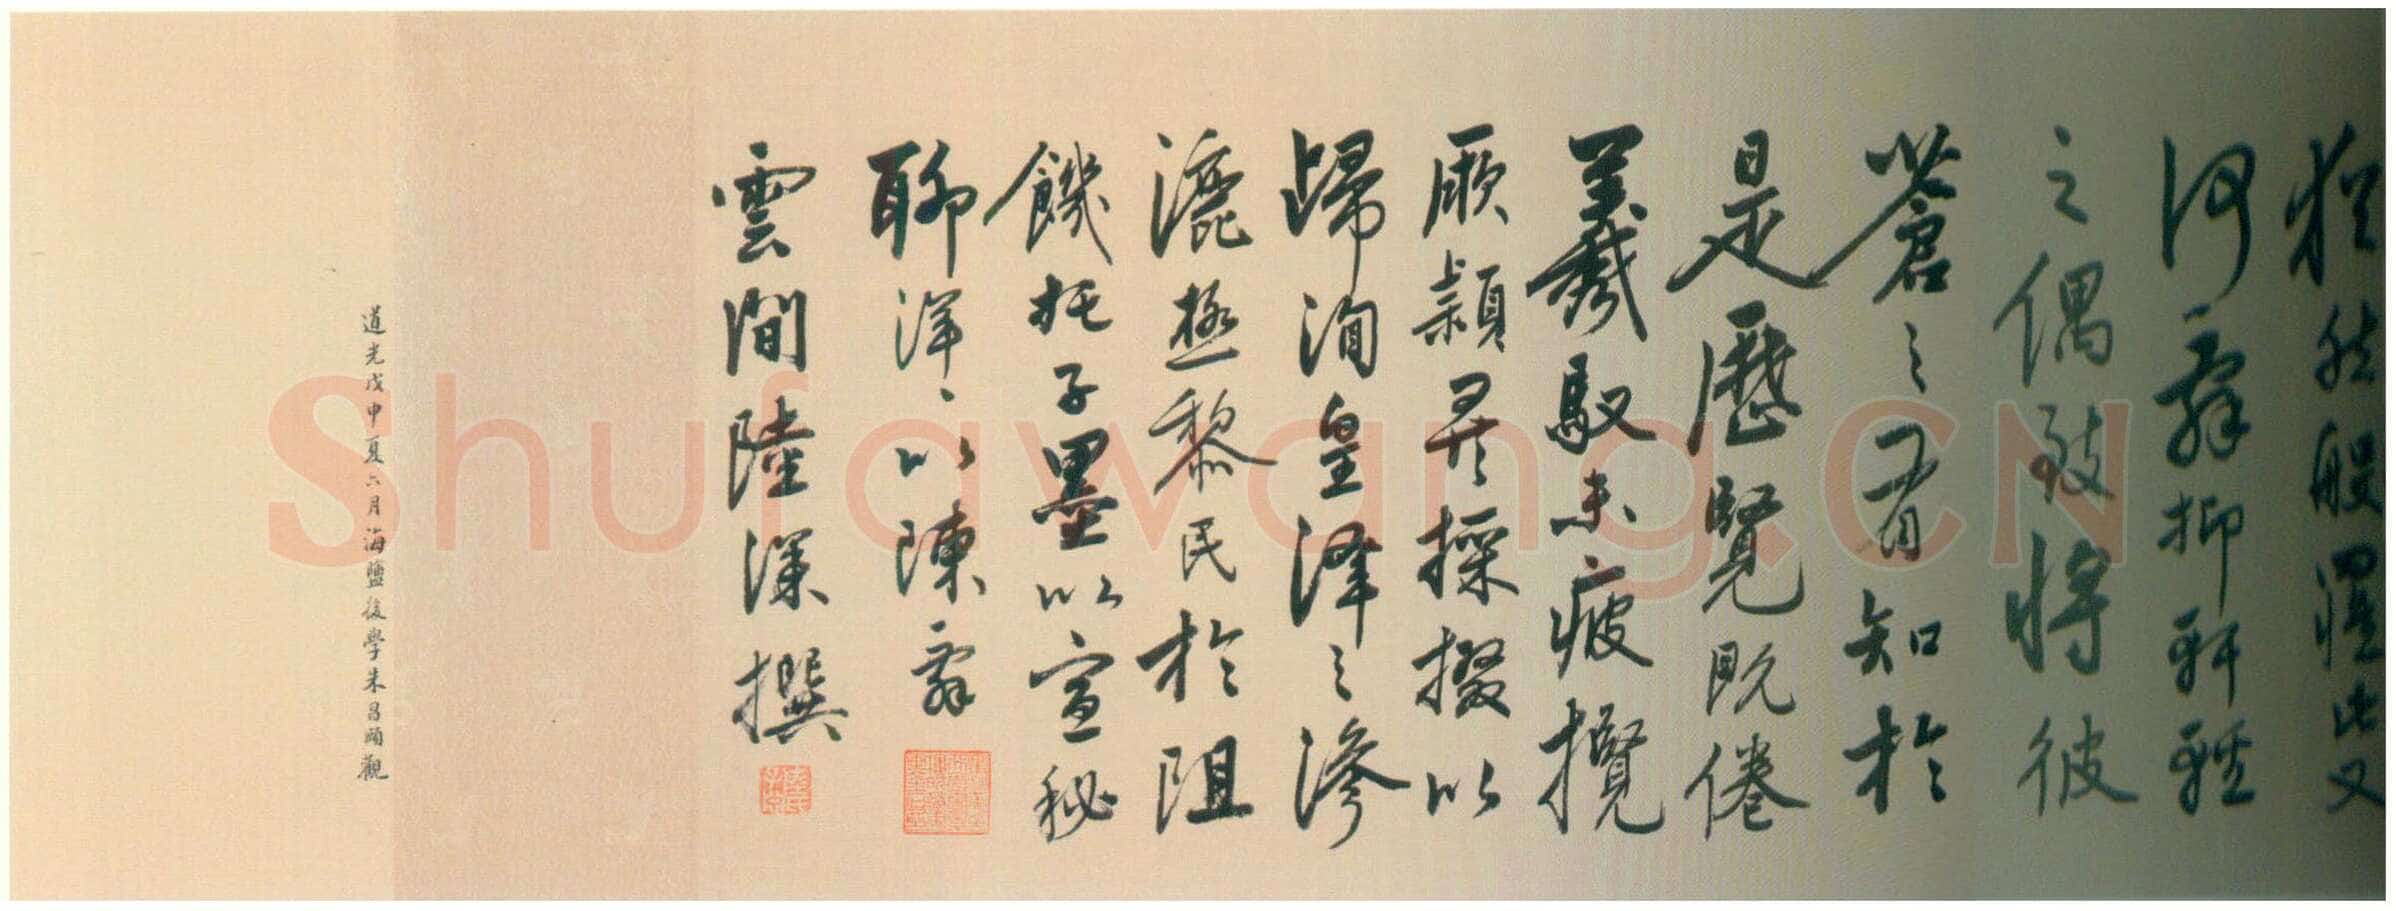 猶然般濯此又
何辭抑軒輊
之偶致將彼
蒼之有知於
是歷覽既倦
羲馭未疲攬
厥穎異採掇以
歸洵皇澤之滲
漉拯黎民於阻
饑托子墨以宣秘
聊洋洋以陳辭
雲間陸深撰
道光戊申夏六月海鹽後學朱昌頤觀
Shufawang.CN